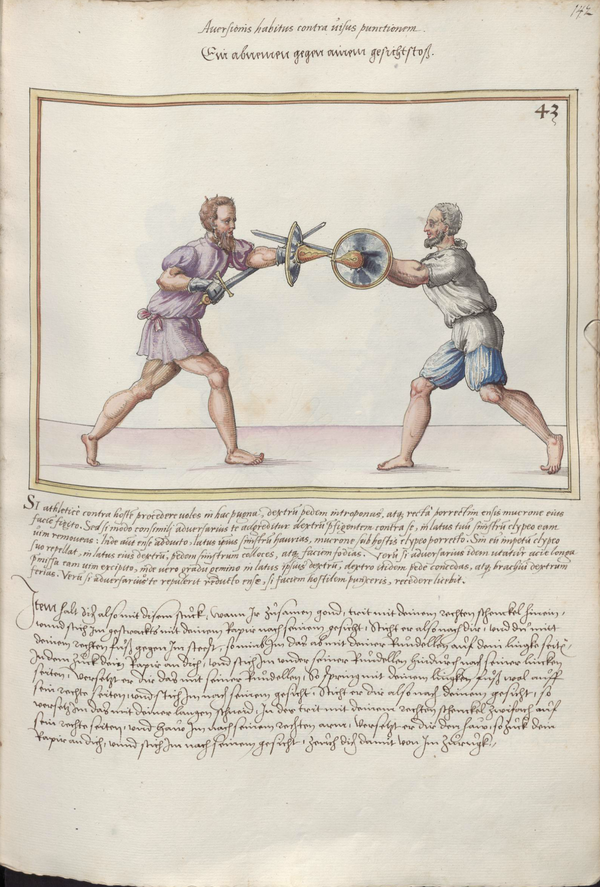 142
Aversionis habitus contra visus punctionem.
Ein abnemen gegen ainem gesichtstoß.
43
Si athleticè contra hostē procedere voles in hac pugna, dextrū pedem intropones, atq; recta porrectim ensis mucrone eius
faciē figito. Sed si modo consimili adversarius te agreditur dextrū pōigentem contra se, in latus tuū sinistrū clypeo eam
vim removeas: inde aūt ense adducto, latus ipsius sinistrū haurias, mucrone sub hostis clypeo porrecto. Sin eū impetū clypeo
suo repellat, in latus eius dextrū, pedem sinistrum colloces, atq; faciem fodias. Verū si adversarius idem utatur acie longa
pōissa eam vim excipito, inde vero gradu gemino in latus ipsius dextrū, dextro eidem pede concedas, atq; brachiū dextrum
ferias. Verū si adversariūs te repulerit reducto ense, si faciem hostilem punxeris, recedere licebit.
Item halt dich also mit disem stuck, wann Ir zusamen gond, trit mit deinem rechten schenckel hinein,
unnd stich Im gestrackts mit deinem Rapir nach seinem gesicht, Sticht er also nach dir, und du mitt
deinem rechten fuß gegen Im steest, so nimb Im das ab mit deiner Rundellen auf dein lingke seiten
Indem zuck dein Rapir an dich, und stich Im under seiner Rundellen hindurch nach seiner lincken
seiten, versetzt er dir das mit seiner Rundellen, So spring mit deinem lingkten fuß wol auff
sein rechte seiten, und stich Im nach seinem gesicht, Sticht er dir also nach deinem gesicht, so
versetz In das mit deiner langen schneid, In der trit mit deinem rechten schenckel zwifach auf
sein rechte seiten, und haw Im nach seinem rechten arm, versetzt er dir den haw, so zuck dein
Rapir an dich, unnd stich Im nach seinem gesicht, zeuch dich damit von Im zuruck.